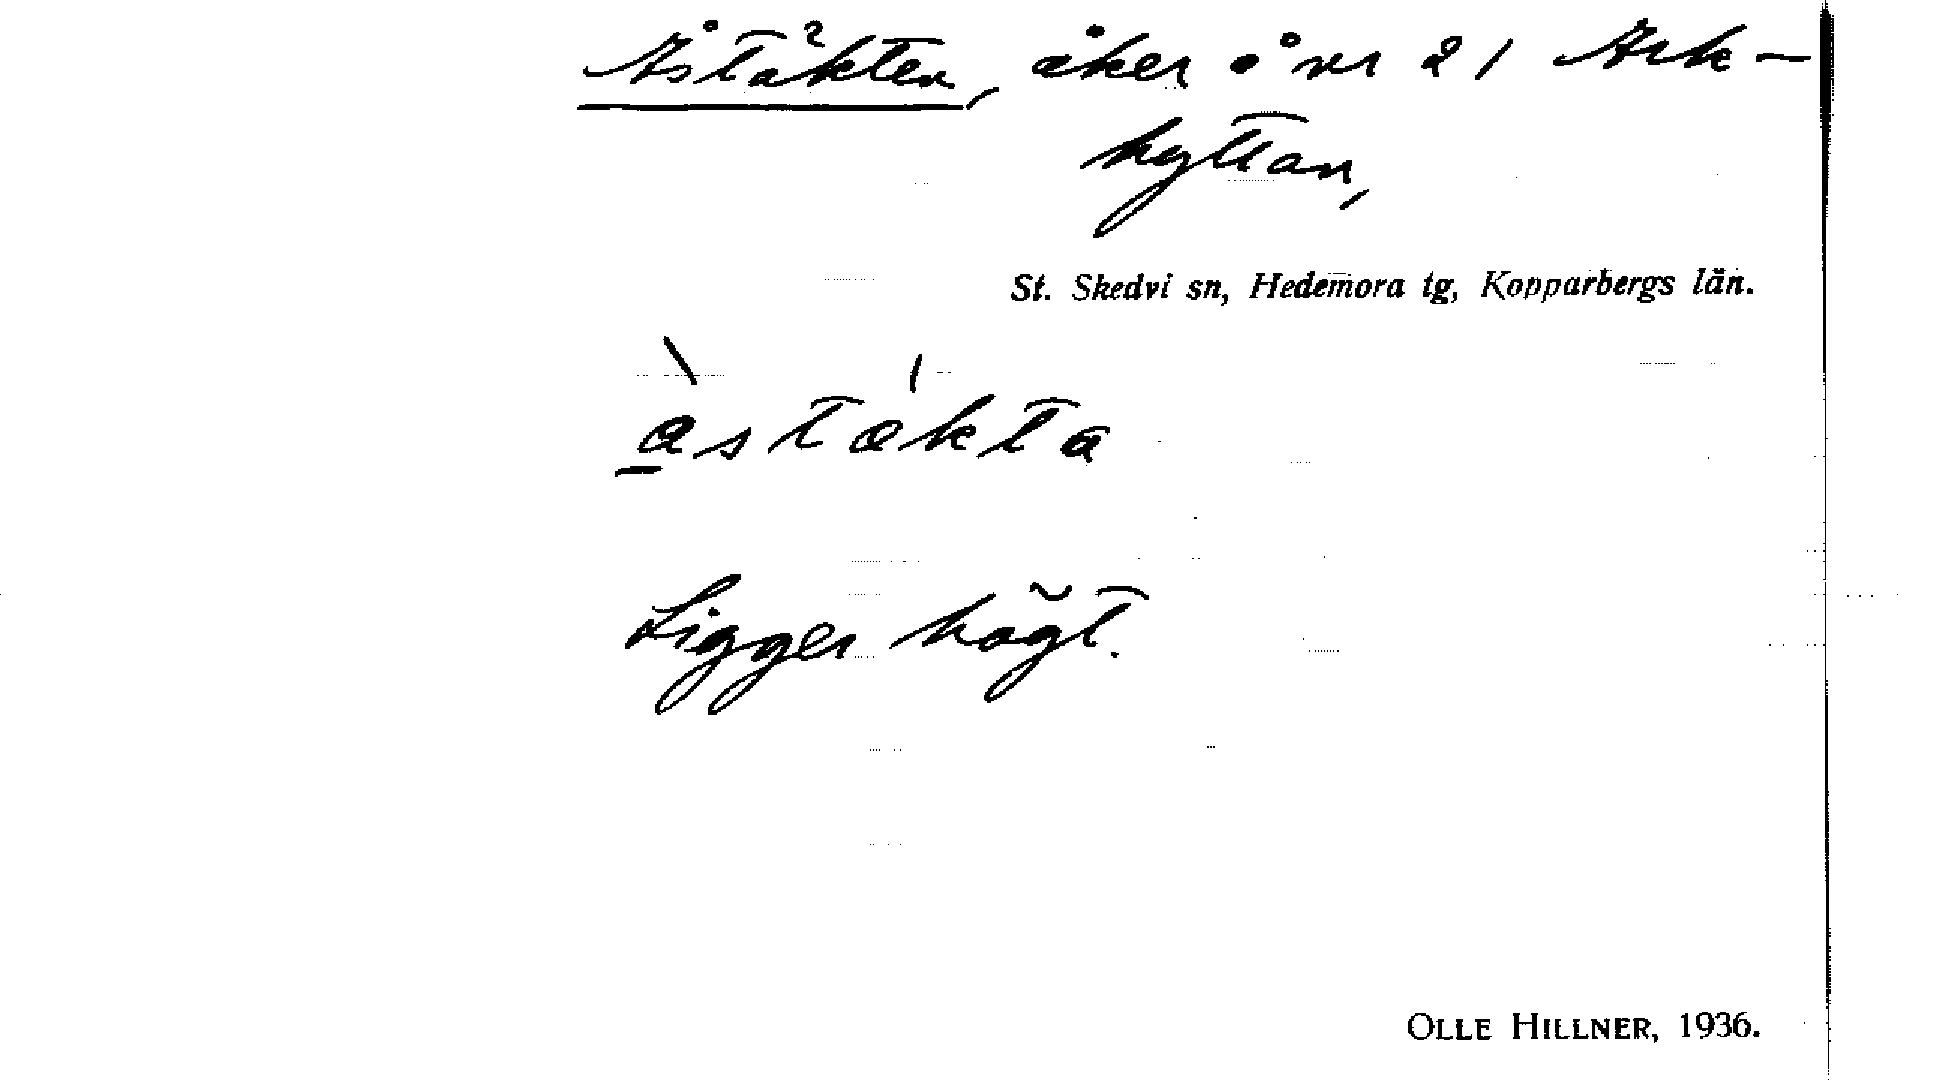 Åstäkten, åker ö vr 21 Ark-
hyttan,
St. Skedvi sn, Hedemora tg, Kopparbergs län.
à̱stǽkta
Ligger högt.
OLLE HILLNER, 1936.